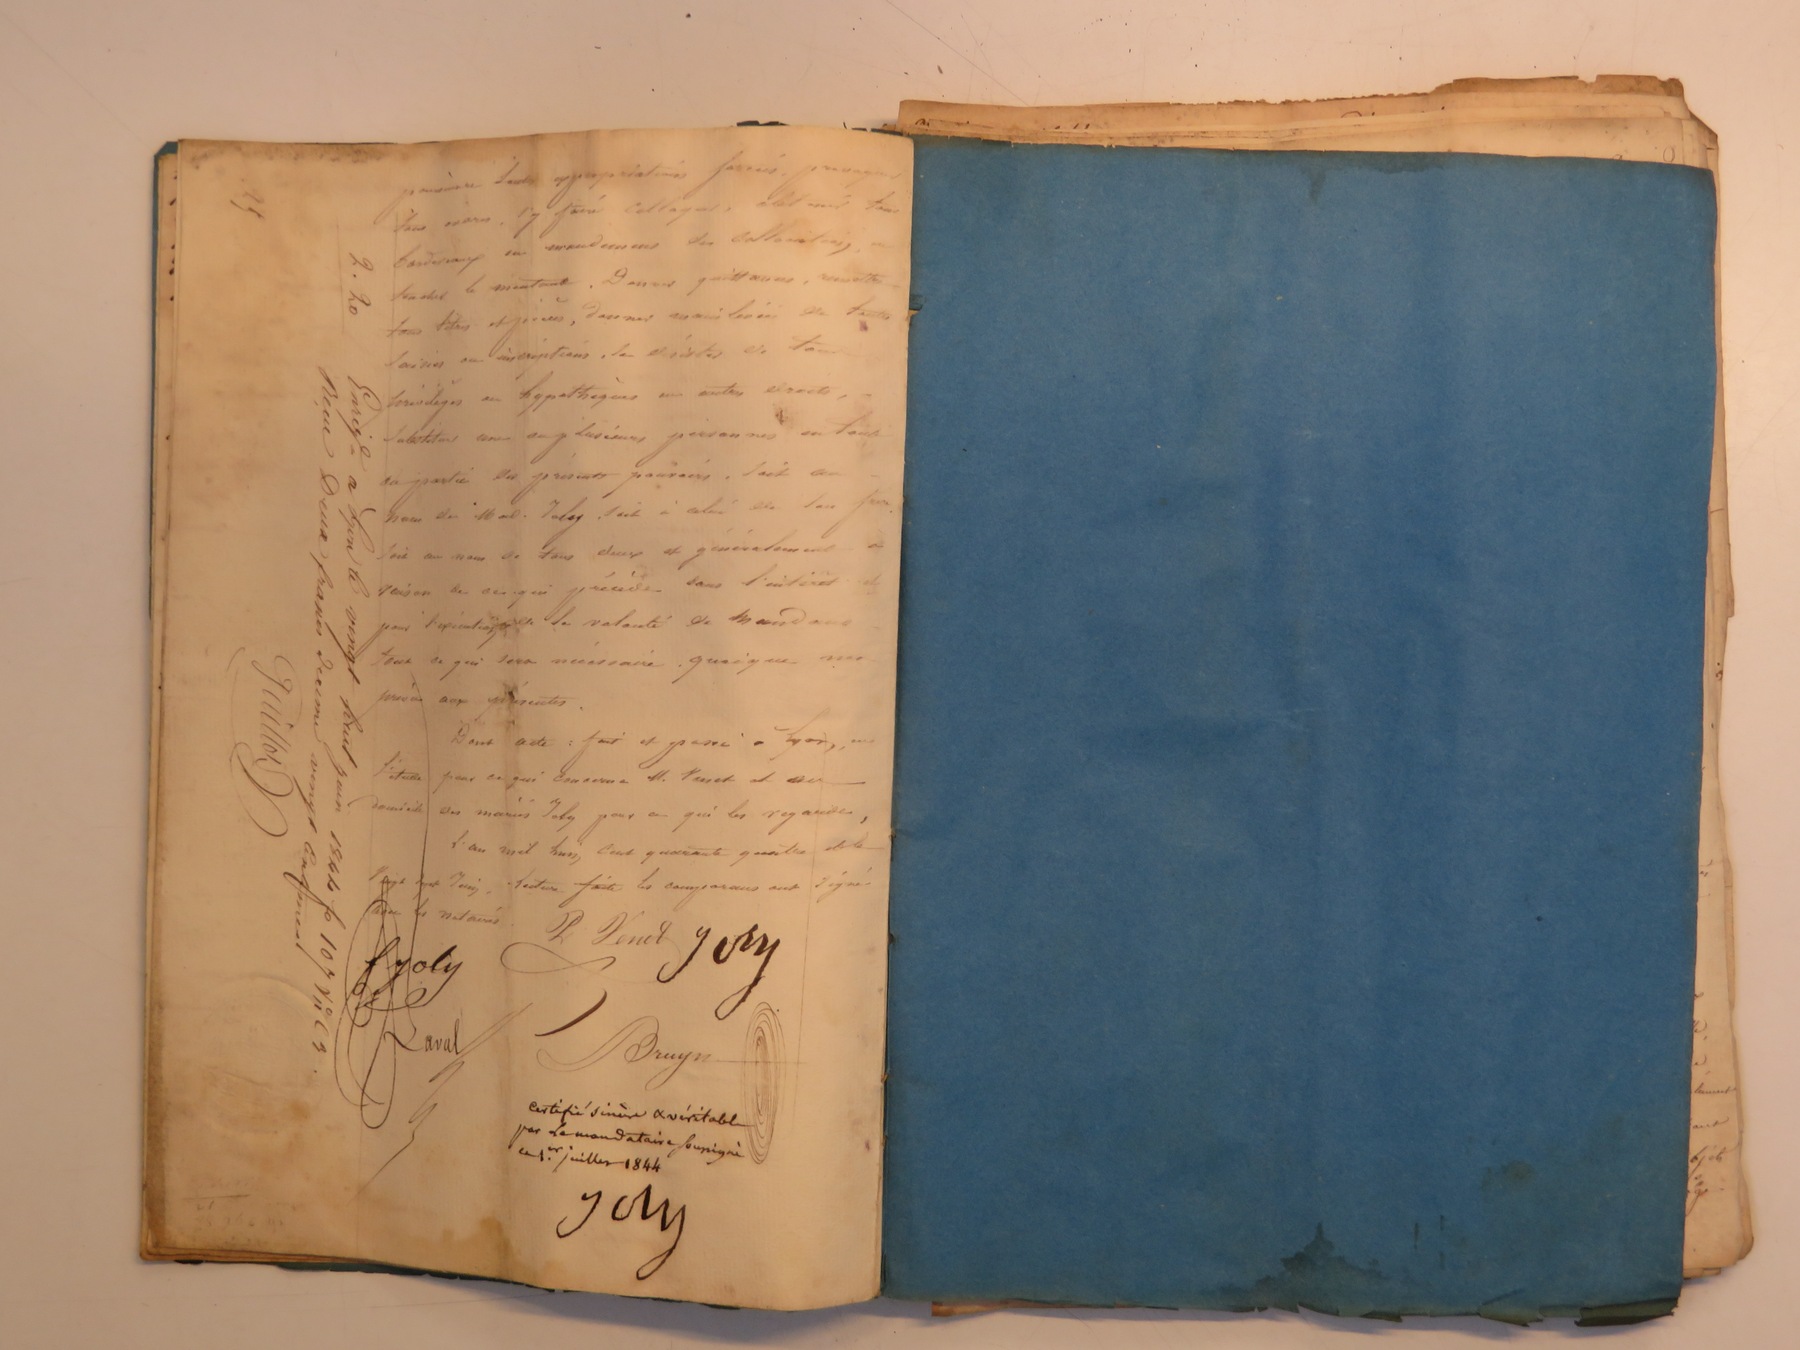 poursuivre toutes expropriations forcées, provoquer
tous ordres, s'y faire colloquer, obtenir tous
bordereaux ou mandemens de collocation, en
toucher le montant. Donner quittances, remettre
tous titres et pièces, donner mainlevées de toutes
saisies ou inscriptions, se désister de tous
privilèges ou hypothèques ou autres droits,
substituer une ou plusieurs personnes en tout
ou partie des présents pouvoirs, soit au
nom de Mad. Joly, soit à celui de son
soit au nom de tous deux et généralement
raison de ce qui précède dans l'intérêt
pour l'exécution de la volonté de
tout ce qui sera nécessaire, quoique non
prévu aux présentes.
Dont acte : fait et passé à Lyon, en
l'étude pour ce qui concerne M. Venet et au
domicile des mariés Joly pour ce qui les regarde,
L'an mil huit cent quarante quatre et le
vingt sept Juin. Lecture faite les comparans ont signé
avec les notaires.
P Venet Joly
f Joly
Laval
Bruyn
certifié sincère & véritable
par le mandataire soussigné
ce 1er juillet 1844
Joly
2. 20
Enregé à Lyon le vingt huit juin 1844 fo 107
Reçu Deux francs décime vingt centimes